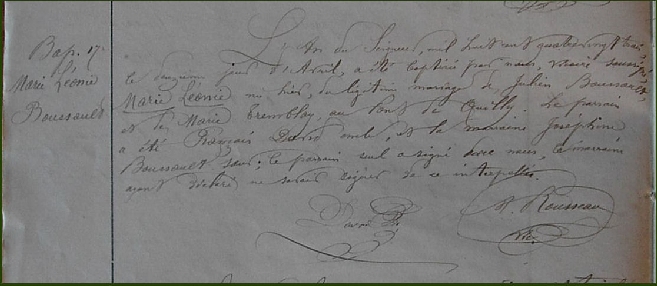 Bap. 17
Marie Léonie
Boussault
L'An du Seigneur, mil huit cent quatre vingt trois
le deuxième jour d'Avril, a été baptisée par nous, vicaire soussigné,
Marie Léonie née hier, du légitime mariage de Julien Boussault,
et de Marie Tremblay, au Pont de Le parrain
a été François David oncle, et la marraine Joséphine
Boussault sœur; le parrain seul a signé avec nous, la marraine
ayant déclaré ne savoir signer de ce interpellée.
David F.
A. Rousseau
vic.